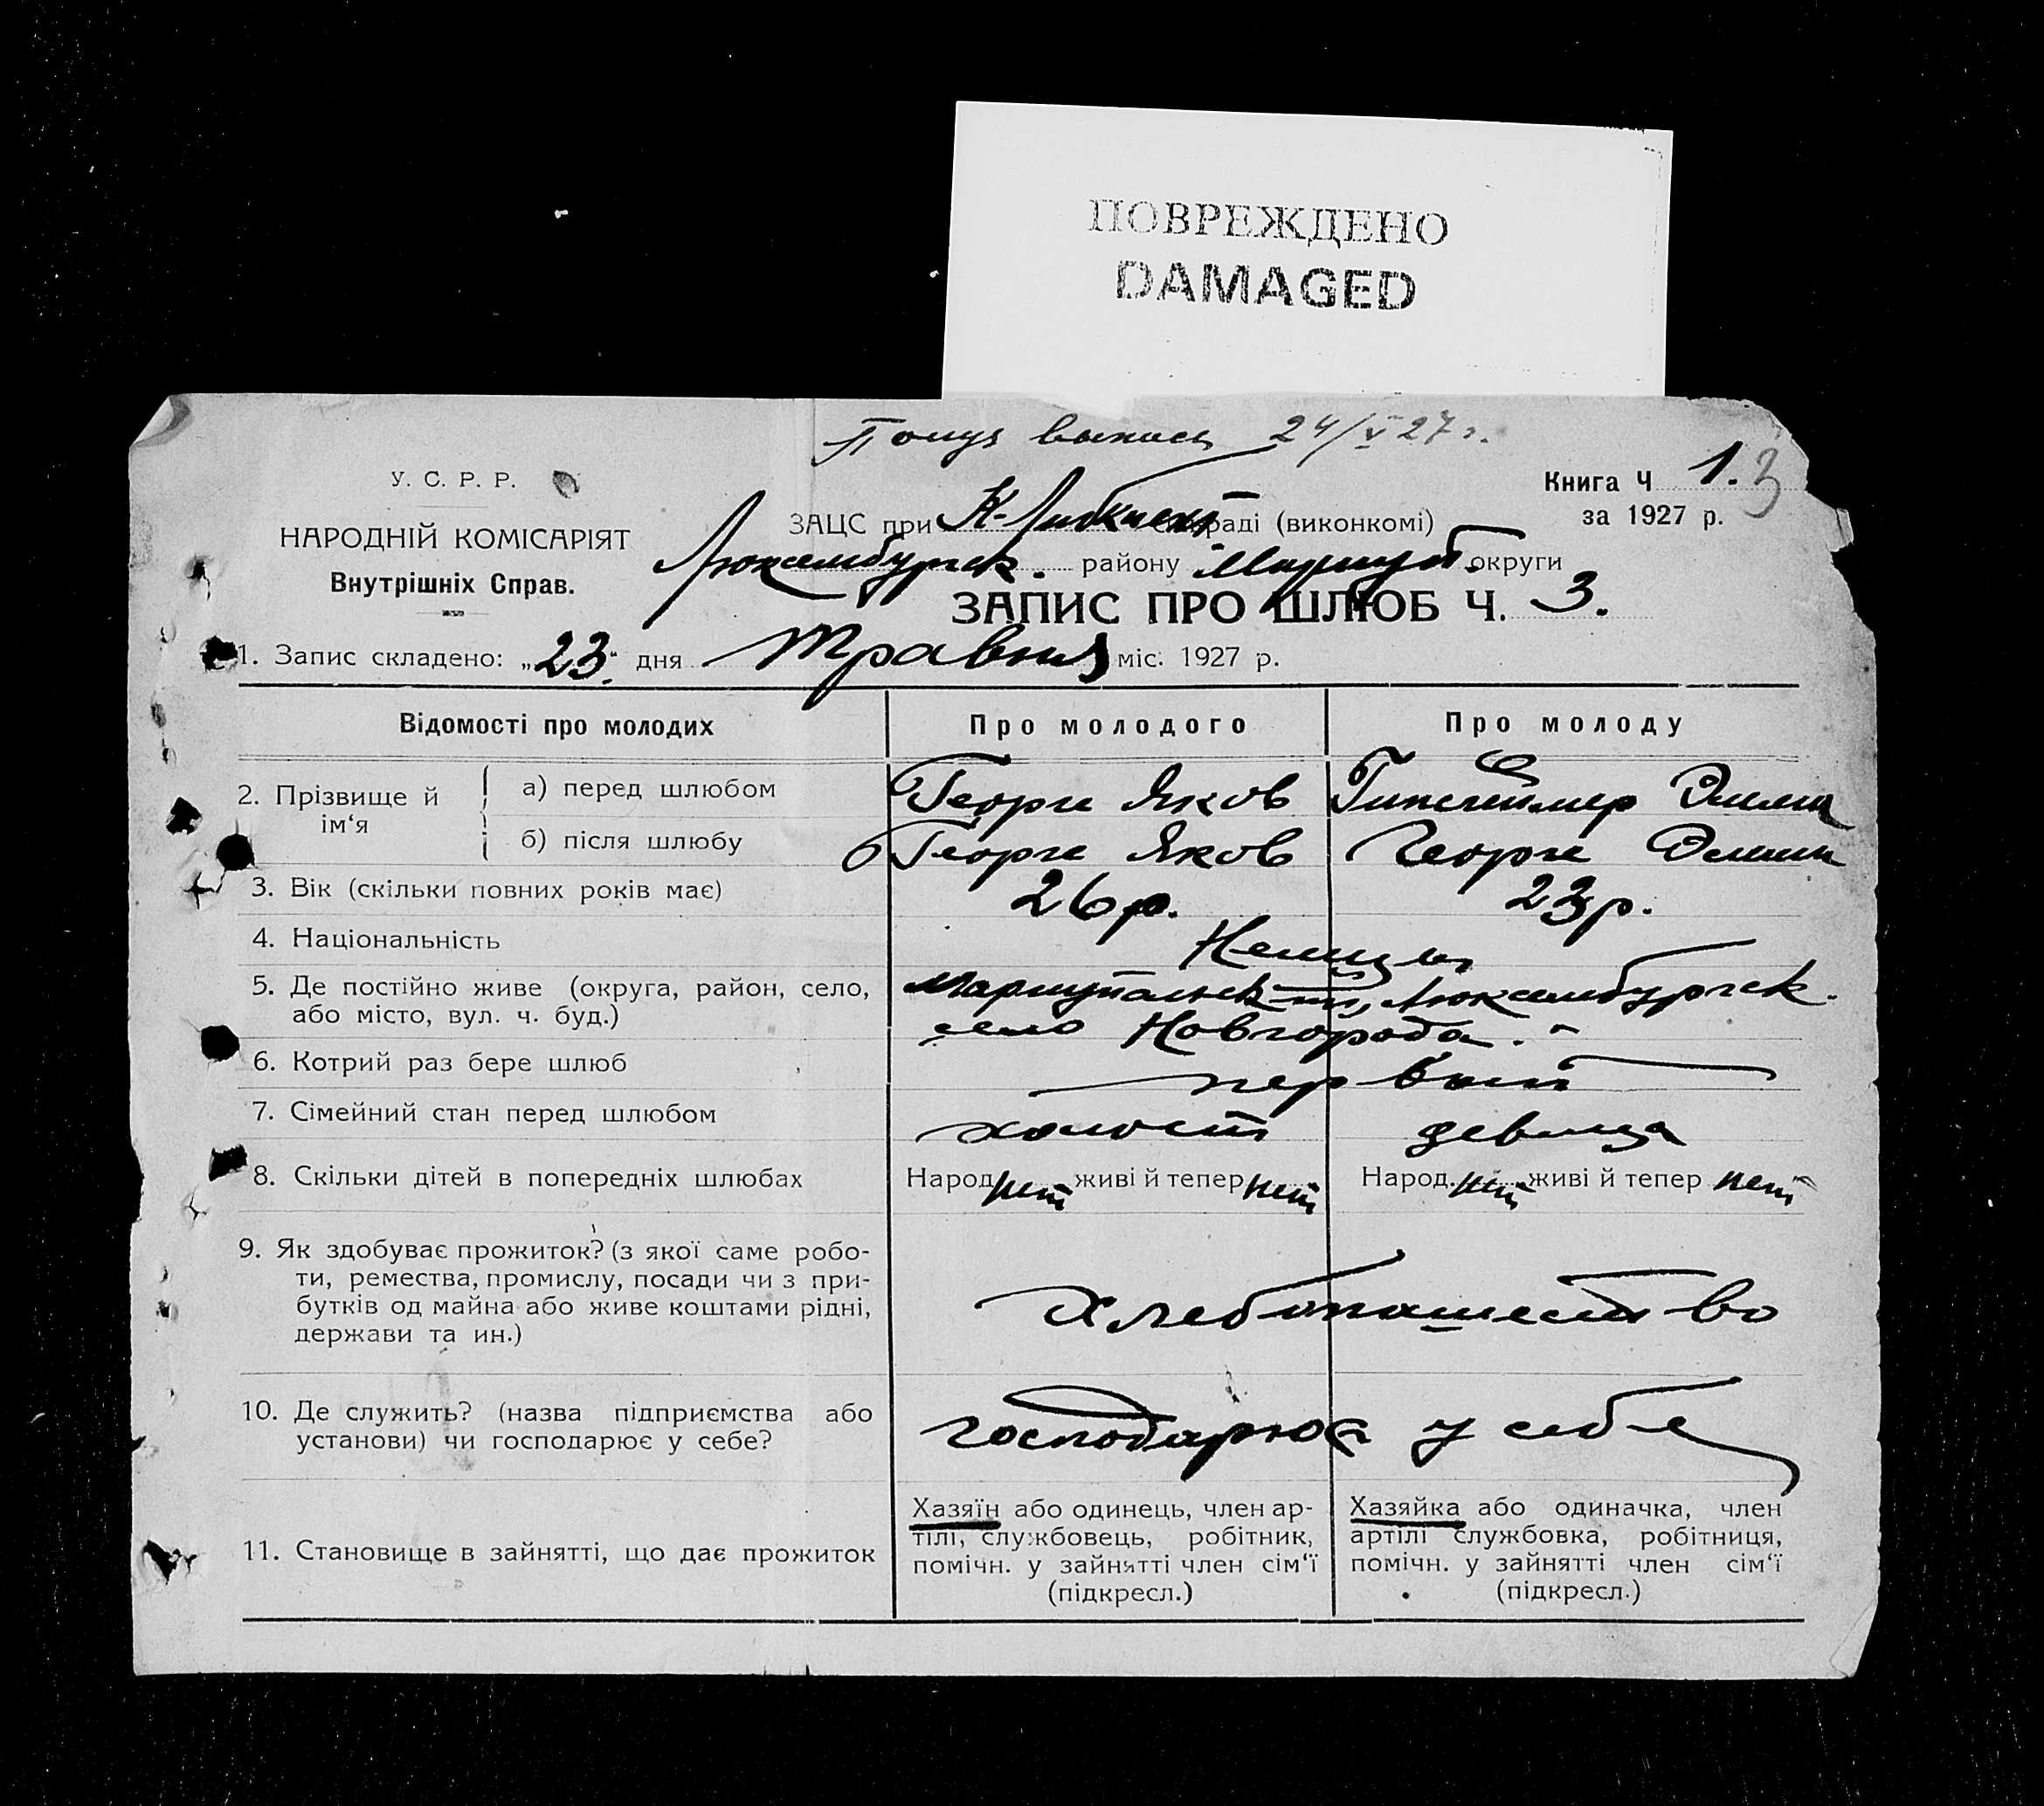 ПОВРЕЖДЕНО
DAMAGED
24/V 27 г.
У. С. Р. Р.
Книга Ч 1.
НАРОДНІЙ КОМІСАРІЯТ
Внутрішніх Справ.
ЗАЦС при Н-Либкнехт раді (виконкомі)
за 1927 р.
Люксембургск. району Мариуп. округи
ЗАПИС ПРО ШЛЮБ Ч. 3.
1. Запис складено: „23.“ дня Травня міс. 1927 р.
Відомості про молодих
Про молодого
Про молоду
2. Прізвище й ім‘я
а) перед шлюбом
Георге Яков
Эмма
б) після шлюбу
Георге Яков
Георге
3. Вік (скільки повних років має)
26 р.
23 р.
4. Національність
Немцы
5. Де постійно живе (округа, район, село,
або місто, вул. ч. буд.)
Мариупольск Люксембургск.
село Новгорода.
6. Котрий раз бере шлюб
первый
7. Сімейний стан перед шлюбом
холост
девица
8. Скільки дітей в попередніх шлюбах
Народ. нет живі й тепер нет
Народ. нет живі й тепер нет
9. Як здобуває прожиток? (з якої саме робо-
ти, ремества, промислу, посади чи з при-
бутків од майна або живе коштами рідні,
держави та ин.)
Хлебопашество
10. Де служить? (назва підприємства або
установи) чи господарює у себе?
господарює у себе
11. Становище в зайнятті, що дає прожиток
Хазяїн або одинець, член ар-
тілі, службовець, робітник,
помічн. у зайнятті член сім‘ї
(підкресл.)
Хазяйка або одиначка, член
артілі службовка, робітниця,
помічн. у зайнятті член сім‘ї
(підкресл.)